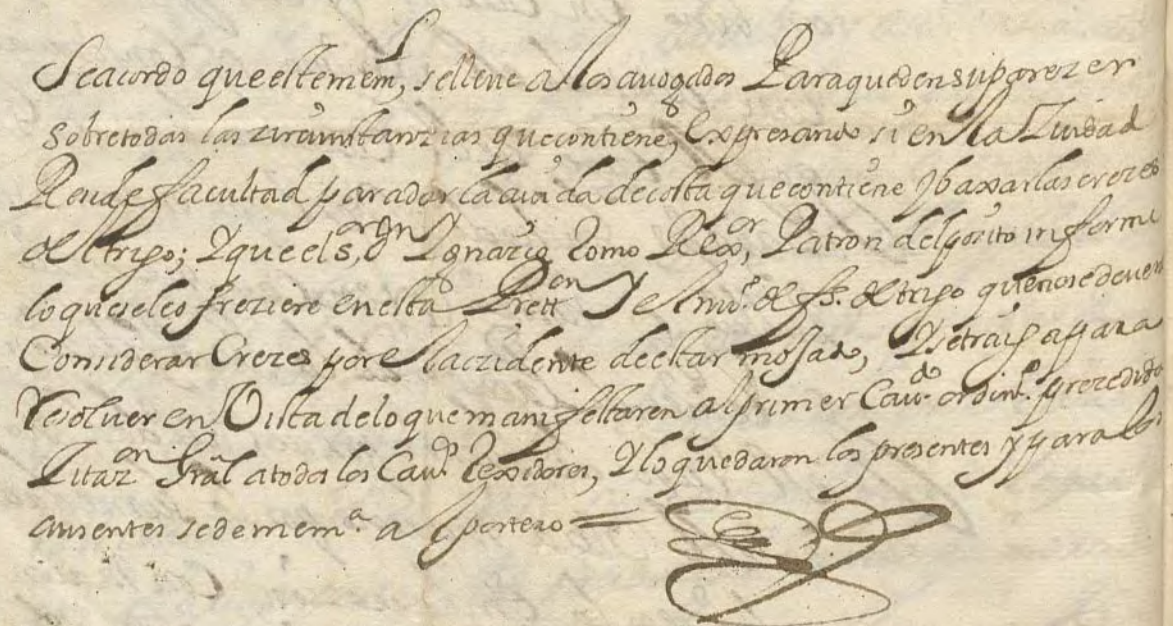 Seacordo que este mem.l, se lleve a los auogados Para que den su parezer
sobre todas las zircunstanzias que contiene, Expresando si en la Ziudad
Reside facultad para dar la aiuda de costa que contiene y baxar las crezes
del trigo; Y que el s.or d.n Ygnazio como Rex.or, Patron del posito informe
lo que se le ofreziere en esta Prett.on Y el nu.o de f.s de trigo que no se deuen
Considerar Crezes por el aczidente de estar mojado, Y se traiga para
Resoluer en Vista de lo que manifestaren al primer Cau.do ordin.o prezedido
Zitaz.on Gräl a todos los Cau.s Rexidores, Y lo quedaron los presentes y para los
ausentes se de mem.a al portero =